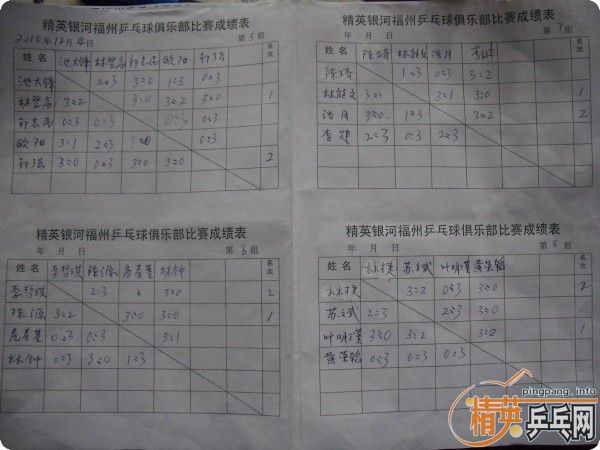 精英银河福州乒乓球俱乐部比赛成绩表
2010年12月4日 第5组
姓名 池大锋 林 欧阳 名次
池大锋 2=3 3=0 1=3 0=3
林 3=2 3=0 3=2 3=0 1
0=3 0=3 0=3 0=3
欧阳 3=1 2=3 0=3
3=0 0=3 3=0 3=0 2
精英银河福州乒乓球俱乐部比赛成绩表
年 月 日 第7组
姓名 陈琦 林能文 浩月 李 名次
陈琦 1=3 0=3 3=2
林能文 3=1 3=1 3=0 1
浩月 3=0 1=3 3=2 2
李 2=3 0=3 2=3
精英银河福州乒乓球俱乐部比赛成绩表
年 月 日 第6组
姓名 李哲琪 陈源 林钟 名次
李哲琪 2=3 3=0 2
陈源 3=2 3=0 3=0 1
0=3 0=3 3=1
林钟 0=3 3=0 1=3
精英银河福州乒乓球俱乐部比赛成绩表
年 月 日 第8组
姓名 林 苏文斌 叶明 黄荣 名次
林 3=2 0=3 3=0 2
苏文斌 2=3 2=3 3=0
叶明 3=0 3=2 3=0 1
黄荣 0=3 0=3 0=3
pingpang.info
精英乒乓网